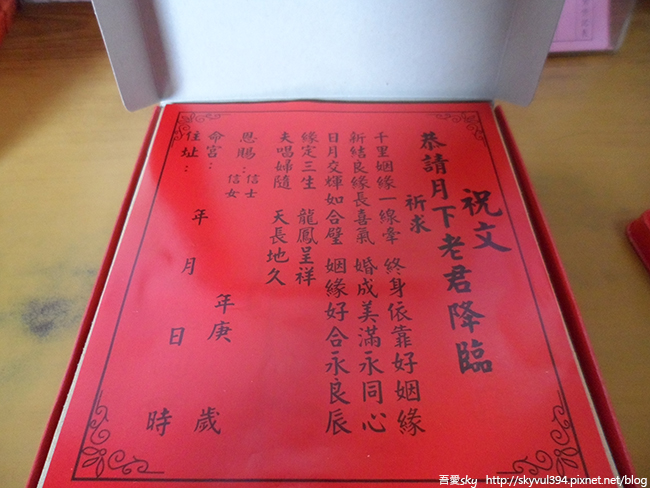 祝文
恭請月下老君降臨
祈求
千里姻緣一線牽 終身依靠好姻緣
新結良緣長喜氣 婚成美滿永同心
日月交輝如合璧 姻緣好合永良辰
緣定三生 龍鳳呈祥
夫唱婦隨 天長地久
恩賜：信士
信女
命宮： 年庚 歲
住址：
年 月 日 時
吾愛sky http://skyvul394.pixnet.net/blog